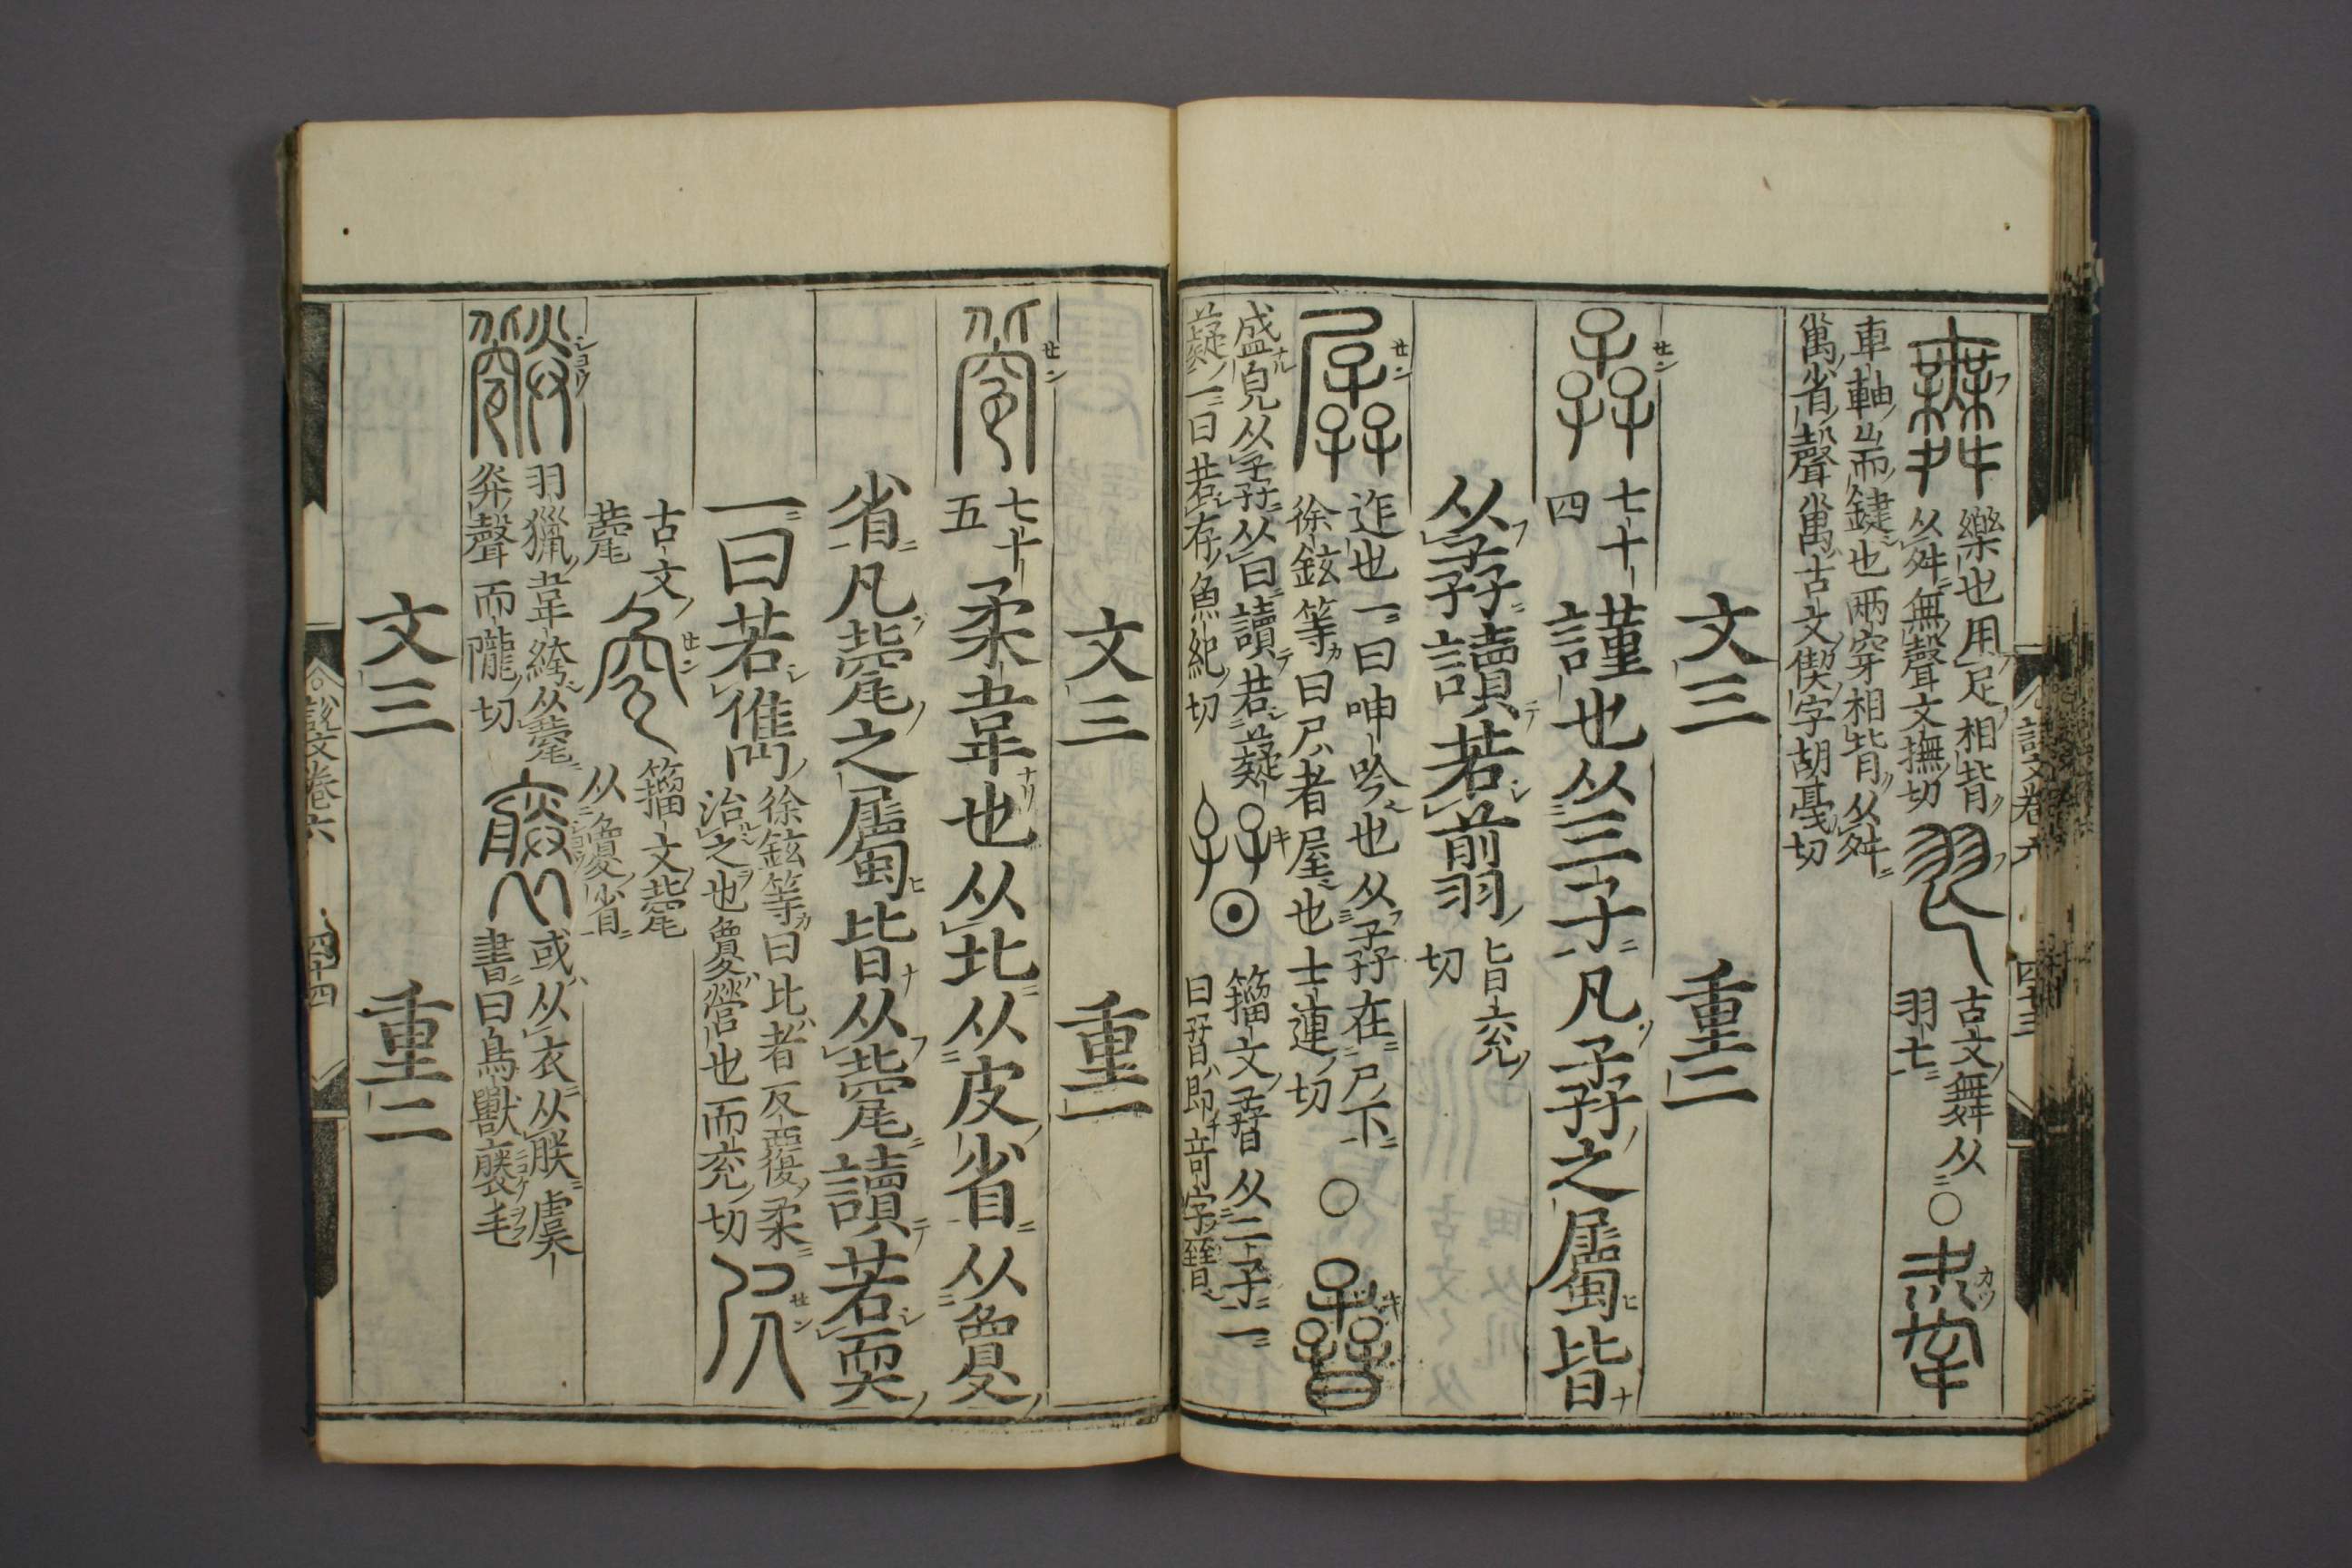 樂也用足相背
从舛無聲文撫切
古文舞从
羽亡
○
車軸耑鍵也兩穿相背从舛
萬省聲萬古文偰字胡戛切
文三
重二
七十
四
謹也从三子凡孨之屬皆
从孨讀若翦
旨兖
切
迮也一曰呻吟也从孨在尸下
徐鉉等曰尸者屋也士連切
○
盛皃从孨从曰讀若薿
薿一曰若存魚紀切
籀文孴从二子一
曰㬜即奇字㬜
文三
重一
七十
五
柔韋也从北从皮省从夐
省凡㼱之屬皆从㼱讀若耎
一曰若儁
徐鉉等曰北者反覆柔
治之也夐營也而兖切
古文
㼱
籀文㼱
从夐省
羽獵韋絝从㼱
灷聲而隴切
或从衣从朕虞
書曰鳥獸褭毛
文三
重二
說文卷六
四十四